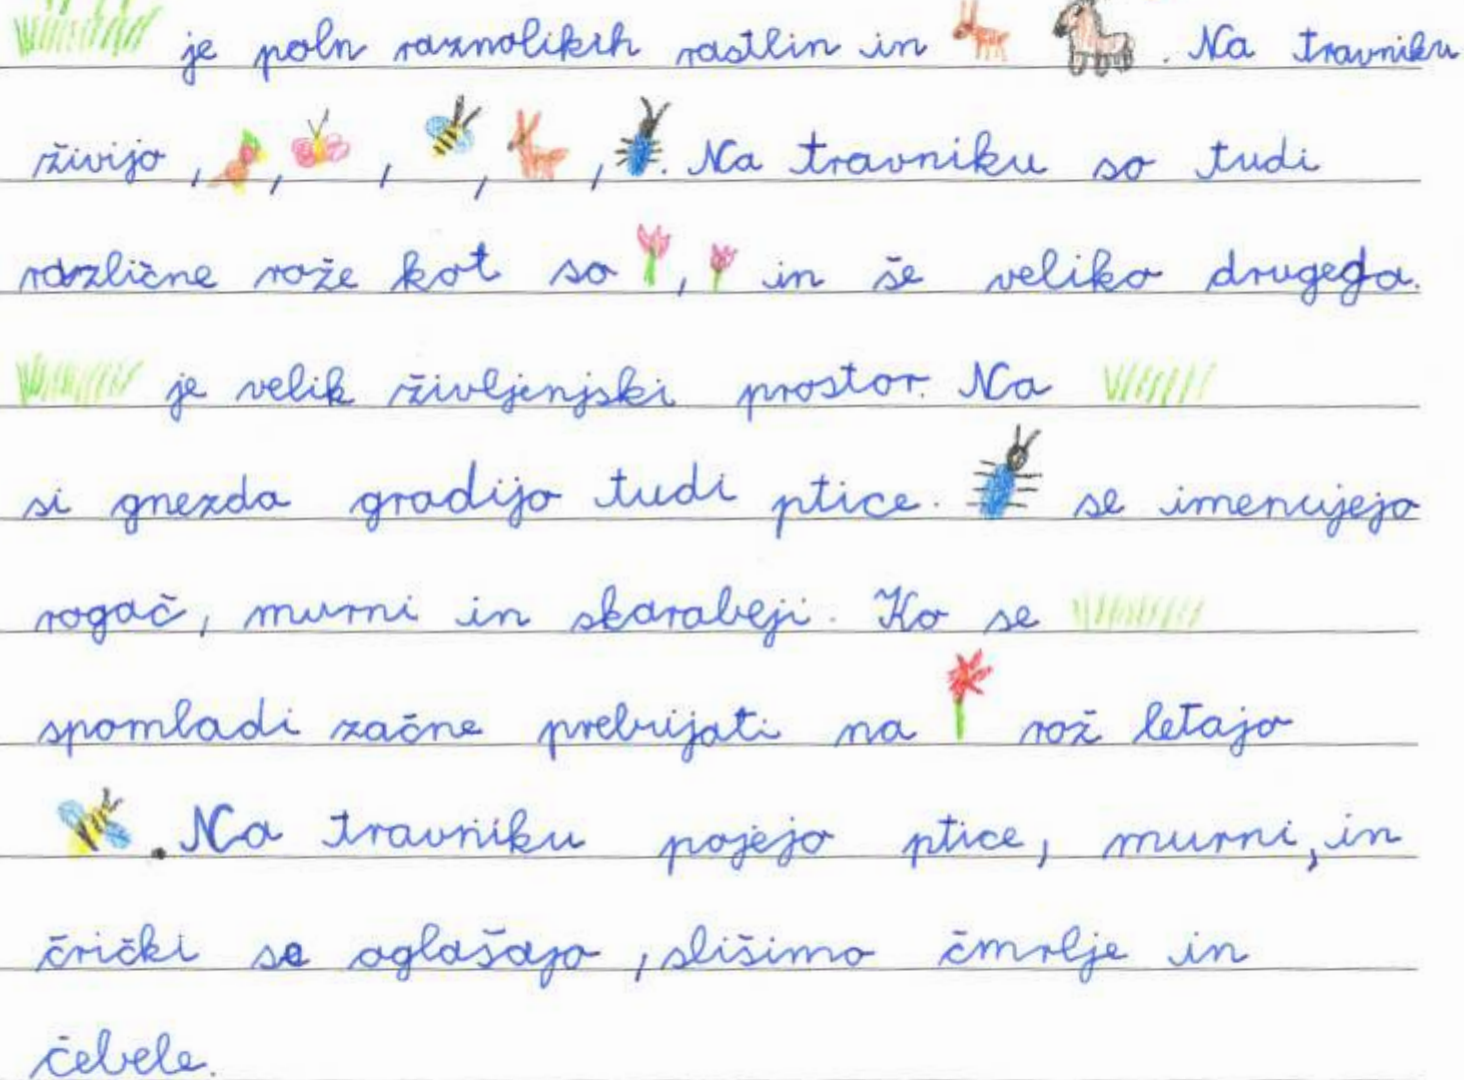 je poln raznolikih rastlin in . Na travniku
živijo , , , , , . Na travniku so tudi
različne rože kot so , in še veliko drugega.
je velik življenjski prostor. Na
si gnezda gradijo tudi ptice. se imenujejo
rogač, murni in skarabeji. Ko se
spomladi začne prebujati na rož letajo
. Na travniku pojejo ptice, murni, in
črički se oglašajo, slišimo čmrlje in
čebele.